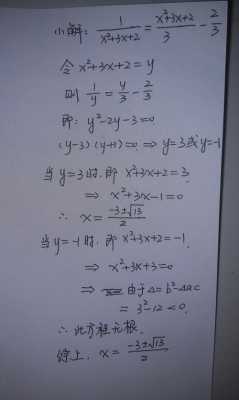 解: 1/(x²+3x+2) = (x²+3x+2)/3 - 2/3
令 x²+3x+2=y
则 1/y = y/3 - 2/3
即: y²-2y-3=0
(y-3)(y+1)=0 ⇒ y=3或y=-1
当y=3时,即 x²+3x+2=3
⇒ x²+3x-1=0
∴ x = (-3±√13)/2
当y=-1时,即 x²+3x+2=-1
⇒ x²+3x+3=0
⇒ 由于Δ=b²-4ac
= 3²-12<0.
∴此方程无根.
综上, x = (-3±√13)/2